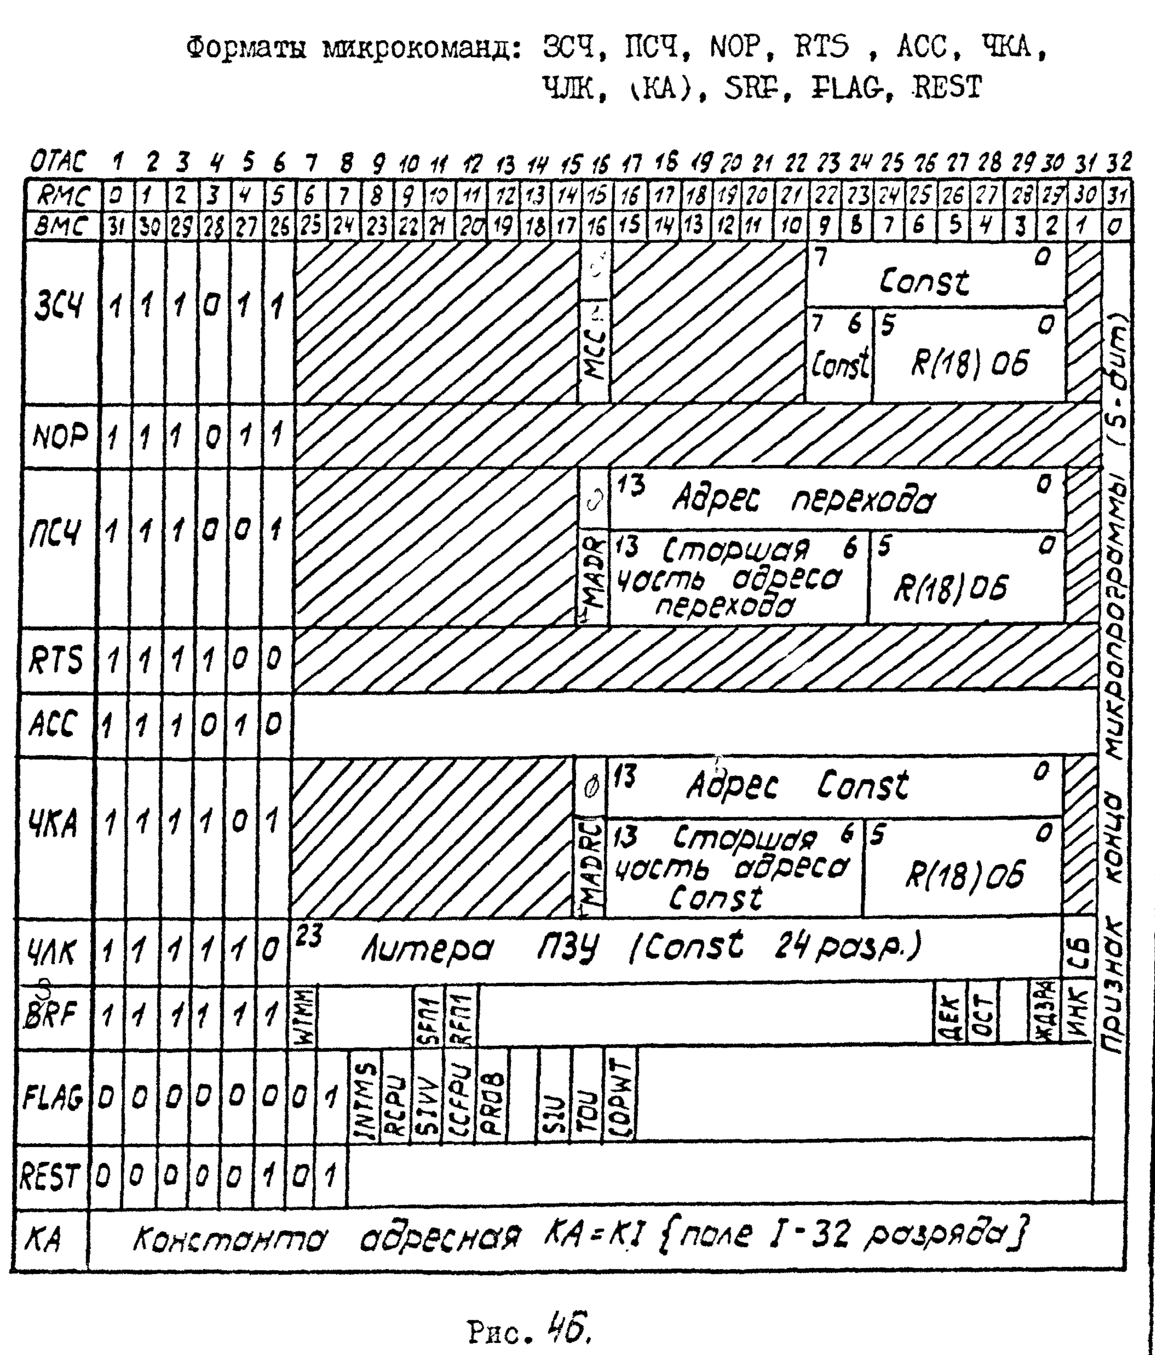 Форматы микрокоманд: ЗСЧ, ПСЧ, NOP, RTS , ACC, ЧКА,
ЧЛК, (КА), SRF, FLAG, REST
ОТАС 1 2 3 4 5 6 7 8 9 10 11 12 13 14 15 16 17 18 19 20 21 22 23 24 25 26 27 28 29 30 31 32
RMC 0 1 2 3 4 5 6 7 8 9 10 11 12 13 14 15 16 17 18 19 20 21 22 23 24 25 26 27 28 29 30 31
BMC 31 30 29 28 27 26 25 24 23 22 21 20 19 18 17 16 15 14 13 12 11 10 9 8 7 6 5 4 3 2 1 0
ЗСЧ 1 1 1 0 1 1
7 Const 0
MCC
7 6 5 0
Const R(18) ОБ
NOP 1 1 1 0 1 1
ПСЧ 1 1 1 0 0 1
0 13 Адрес перехода 0
MADR 13 Старшая 6 5 0
часть адреса R(18) ОБ
перехода
RTS 1 1 1 1 0 0
ACC 1 1 1 0 1 0
ЧКА 1 1 1 1 0 1
0 13 Адрес Const 0
MADRC 13 Старшая 6 5 0
часть адреса R(18) ОБ
Const
ЧЛК 1 1 1 1 1 0 23 Литера ПЗУ (Const 24 разр.) СБ
SRF 1 1 1 1 1 1 WTMM SFП1 RFП1 ДЕК ОСТ ЖДЗРА ИНК
FLAG 0 0 0 0 0 0 0 1 INTMS RCPU SIVV CCFPU PROB SIU TOU COPWT
REST 0 0 0 0 0 1 0 1
КА Константа адресная КА=КI {поле I-32 разряда}
Признак конца микропрограммы (S-бит)
Рис. 46.